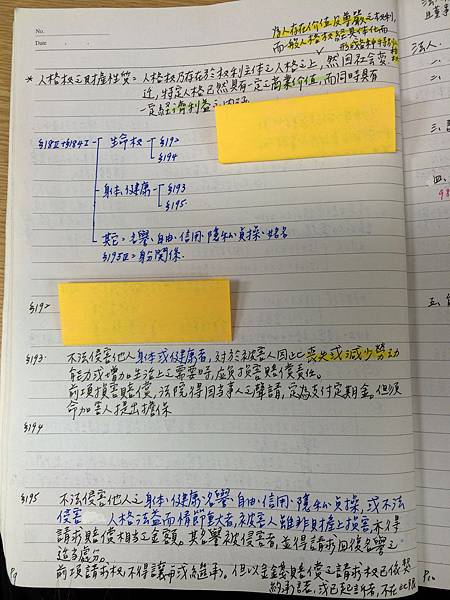 No.
Date
為人存在价值及尊嚴之权利,
而一般人格权經具体化而
形成各种特別
* 人格权之財產性質: 人格权乃存在於权利主体之人格之上, 然因社会变
迁, 特定人格已然具有一定之商業价值, 而同時具有
一定經濟利益之内涵
§18Ⅱ+§184Ⅰ
生命权
§192
§194
身体.健康
§193
§195
其它: 名譽.自由.信用.隱私.貞操.姓名
§195Ⅲ: 身份關係.
§192
§193 不法侵害他人身体或健康者, 对於被害人因此喪失或減少勞动
能力或增加生活上之需要時, 应負損害賠償責任.
前項損害賠償, 法院得因当事人之聲請, 定為支付定期金. 但須
命加害人提出擔保
§194
§195 不法侵害他人之身体.健康.名譽.自由.信用.隱私.貞操, 或不法
侵害 人格法益而情節重大者, 被害人雖非財產上之損害亦得
請求賠償相当之金額. 其名譽被侵害者, 並得請求回復名譽之
適当處分.
前項請求权, 不得讓与或繼承. 但以金錢賠償之請求权已依契
約承諾, 或已起訴者, 不在此限
P9
P10
法人:
一、
二、
三、
四、
五、